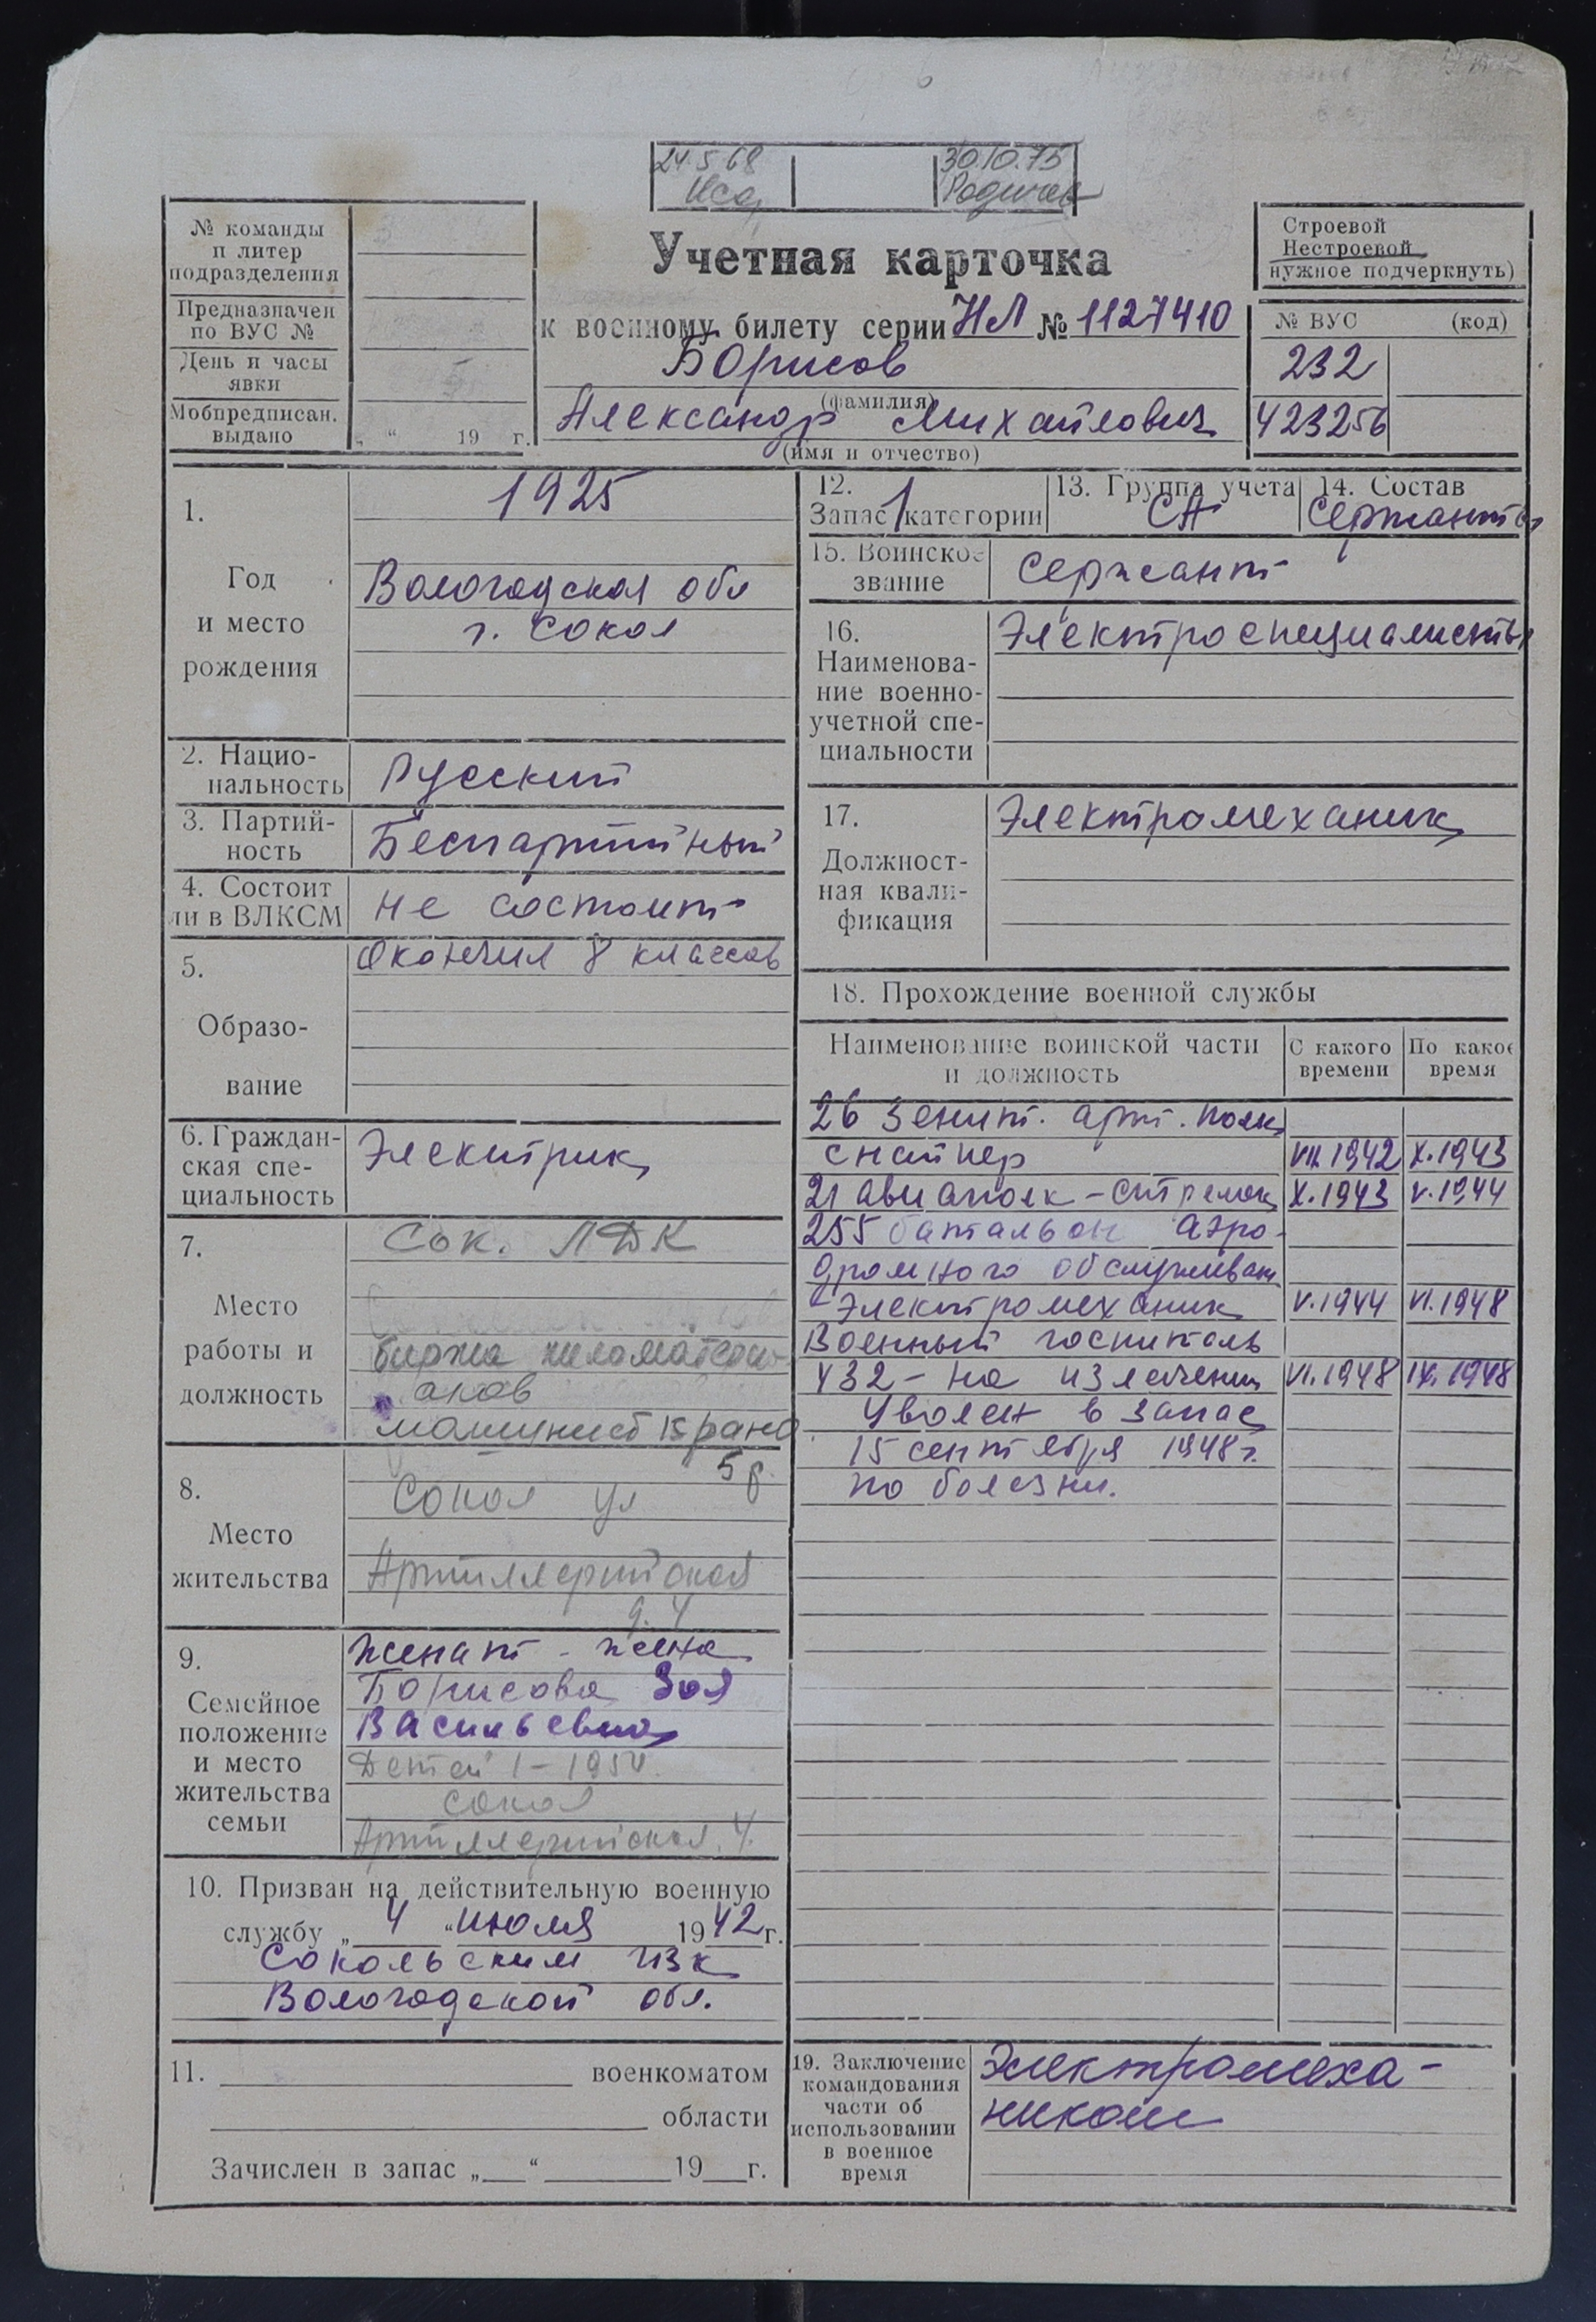 24.5.68
30.10.75
№ команды
и литер
подразделения
Предназначен
по ВУС №
День и часы
явки
Мобпредписан.
выдано
„ “ 19 г.
Учетная карточка
к военному билету серии НЛ № 1127410
Борисов
(фамилия)
Александр Михайлович
(имя и отчество)
Строевой
Нестроевой
нужное подчеркнуть)
№ ВУС (код)
232
423256
1.
Год
и место
рождения
1925
Вологодская обл
г. Сокол
2. Нацио-
нальность
Русский
3. Партий-
ность
Беспартийный
4. Состоит
ли в ВЛКСМ
не состоит
5.
Образо-
вание
Окончил 8 классов
6. Граждан-
ская спе-
циальность
Электрик
7.
Место
работы и
должность
Сок. ЛДК
биржа пиломатери-
алов
машинист крана
5 р.
8.
Место
жительства
Сокол ул
Артиллерийская
д. 4
9.
Семейное
положение
и место
жительства
семьи
женат - жена
Борисова Зоя
Васильевна
Детей 1 - 1954.
Сокол
Артиллерийская, 4.
10. Призван на действительную военную
службу „ 4 “ июля 1942 г.
Сокольским
Вологодской обл.
11. военкоматом
области
Зачислен в запас „ “ 19 г.
12.
Запас 1 категории
13. Группа учета
СА
14. Состав
Сержанты
15. Воинское
звание
сержант
16.
Наименова-
ние военно-
учетной спе-
циальности
Электроспециалисты
17.
Должност-
ная квали-
фикация
Электромеханик
18. Прохождение военной службы
Наименование воинской части
и должность
С какого
времени
По какое
время
26 Зенит. арт. полк
снайпер VII.1942 X.1943
21 авиаполк - стрелок X.1943 V.1944
255 батальон аэро-
дромного обслуживан
- Электромеханик V.1944 VI.1948
Военный госпиталь
432 - на излечении VI.1948 IX.1948
Уволен в запас
15 сентября 1948 г.
по болезни.
19. Заключение
командования
части об
использовании
в военное
время
Электромеха-
ником